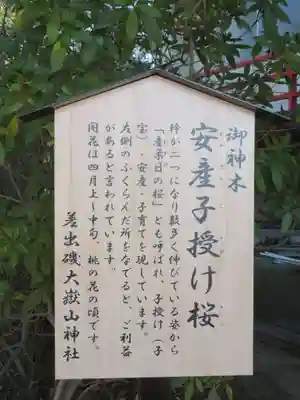 御神木
安産子授け桜
幹が二つになり数多く伸びている姿から
「産気日の桜」とも呼ばれ、子授け（子
宝）・安産・子育てを現しています。
左側のふくらんだ所をなでると、ご利益
があると言われています。
開花は四月上り中旬、桃の花の頃です。
差出磯大嶽山神社